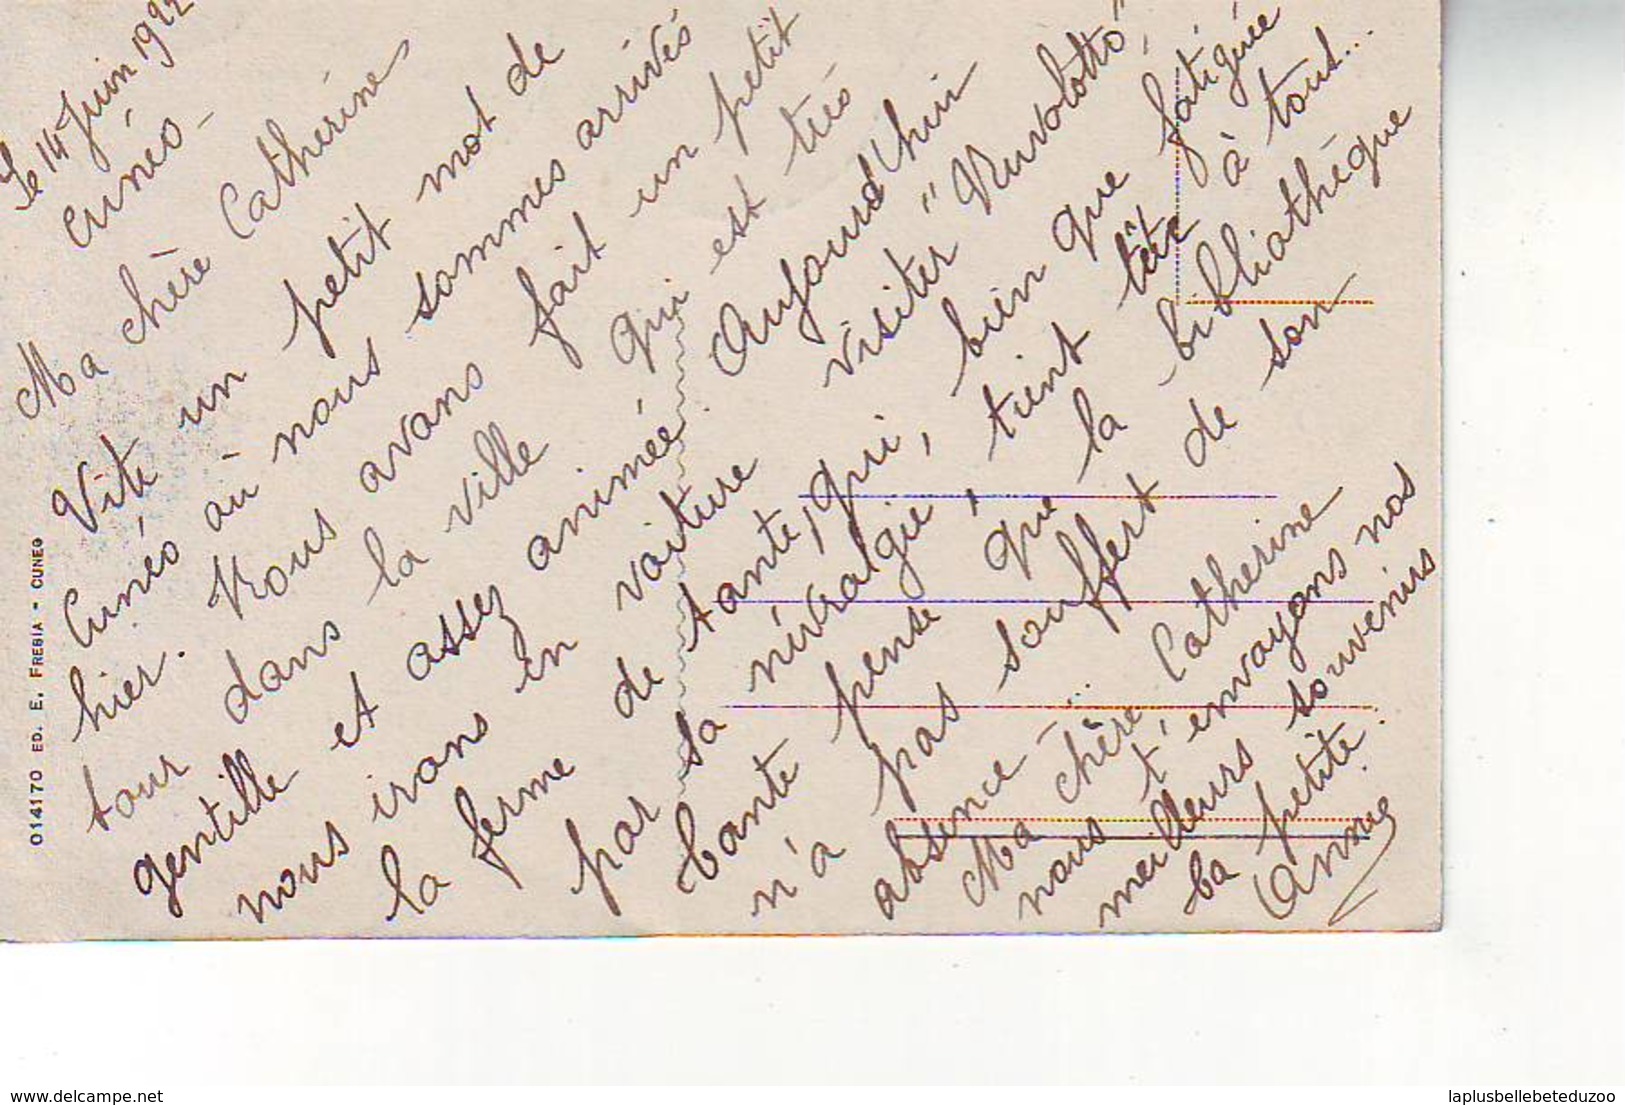 Le 14 Juin 1922
Cunéo -
Ma chère Catherine
Vite un petit mot de
Cunéo où nous sommes arrivés
hier. Nous avons fait un petit
tour dans la ville qui est très
gentille et assez animée. Aujourd'hui
nous irons en voiture visiter "Ruvolotto",
la ferme de tante, qui, bien que fatiguée
par sa nivralgie, tient tête à tout...
Tante pense que la bibliothèque
n'a pas souffert de son
absence -...
Ma chère Catherine
nous t'envoyons nos
meilleurs souvenirs
Ta petite.
Anne
014170 ED. E. FREBIA - CUNEO
www.delcampe.net
laplusbellebeteduzoo